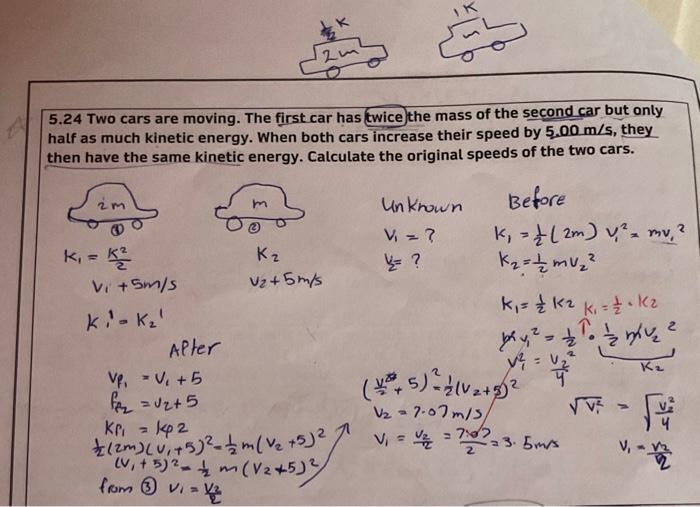 ½K
2m
1K
m
5.24 Two cars are moving. The first car has twice the mass of the second car but only
half as much kinetic energy. When both cars increase their speed by 5.00 m/s, they
then have the same kinetic energy. Calculate the original speeds of the two cars.
2m
①
m
②
Unknown
Before
K₁ = K2/2
K₂
V₁ = ?
K₁ = ½(2m) v₁² = mv₁²
V₁ + 5m/s
V₂ + 5m/s
V₂ = ?
K₂ = ½ mv₂²
K₁' = K₂'
K₁ = ½ K₂
K₁ = ½ · K₂
After
mv₁² = ½ · ½ mv₂²
K₂
V₁² = V₂²/4
Vf₁ = V₁ + 5
= V₂ + 5
Kf₁ = Kf2
½(2m)(V₁ + 5)² = ½ m(V₂ + 5)²
(V₁ + 5)² = ½ m (V₂ + 5)²
from ③ V₁ = V₂/2
(V₂/2 + 5)² = ½(V₂ + 5)²
V₂ = 7.07 m/s
V₁ = V₂/2 = 7.07/2 = 3.5 m/s
√V₁² = √V₂²/4
V₁ = V₂/2